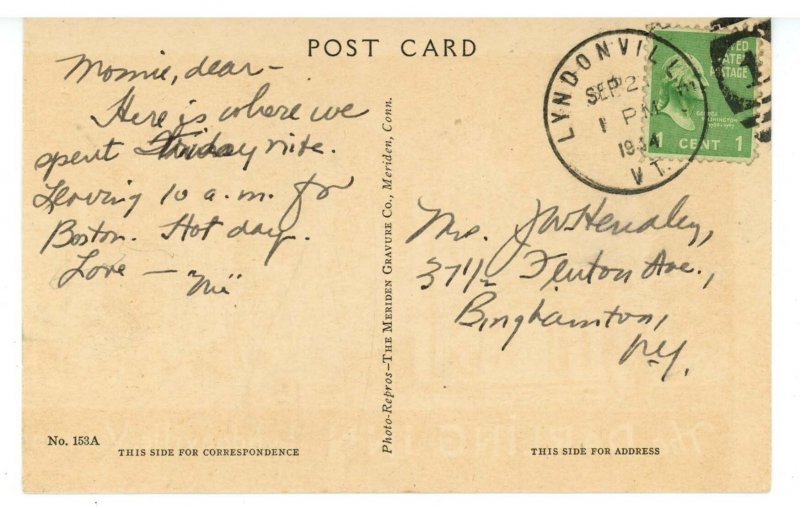 POST CARD
Momie, dear -
Here is where we
spent Friday nite.
Leaving 10 a.m. for
Boston. Hot day.
Love -
LYNDONVILL
SEP 2
1 PM
1944
VT.
TED
ATES
POSTAGE
GEORGE
WASHINGTON
1 CENT 1
Mrs. J W Hendley,
37 1/2 Fenton Ave.,
Binghamton,
N.Y.
Photo-Repros-THE MERIDEN GRAVURE CO., Meriden, Conn.
No. 153A
THIS SIDE FOR CORRESPONDENCE
THIS SIDE FOR ADDRESS